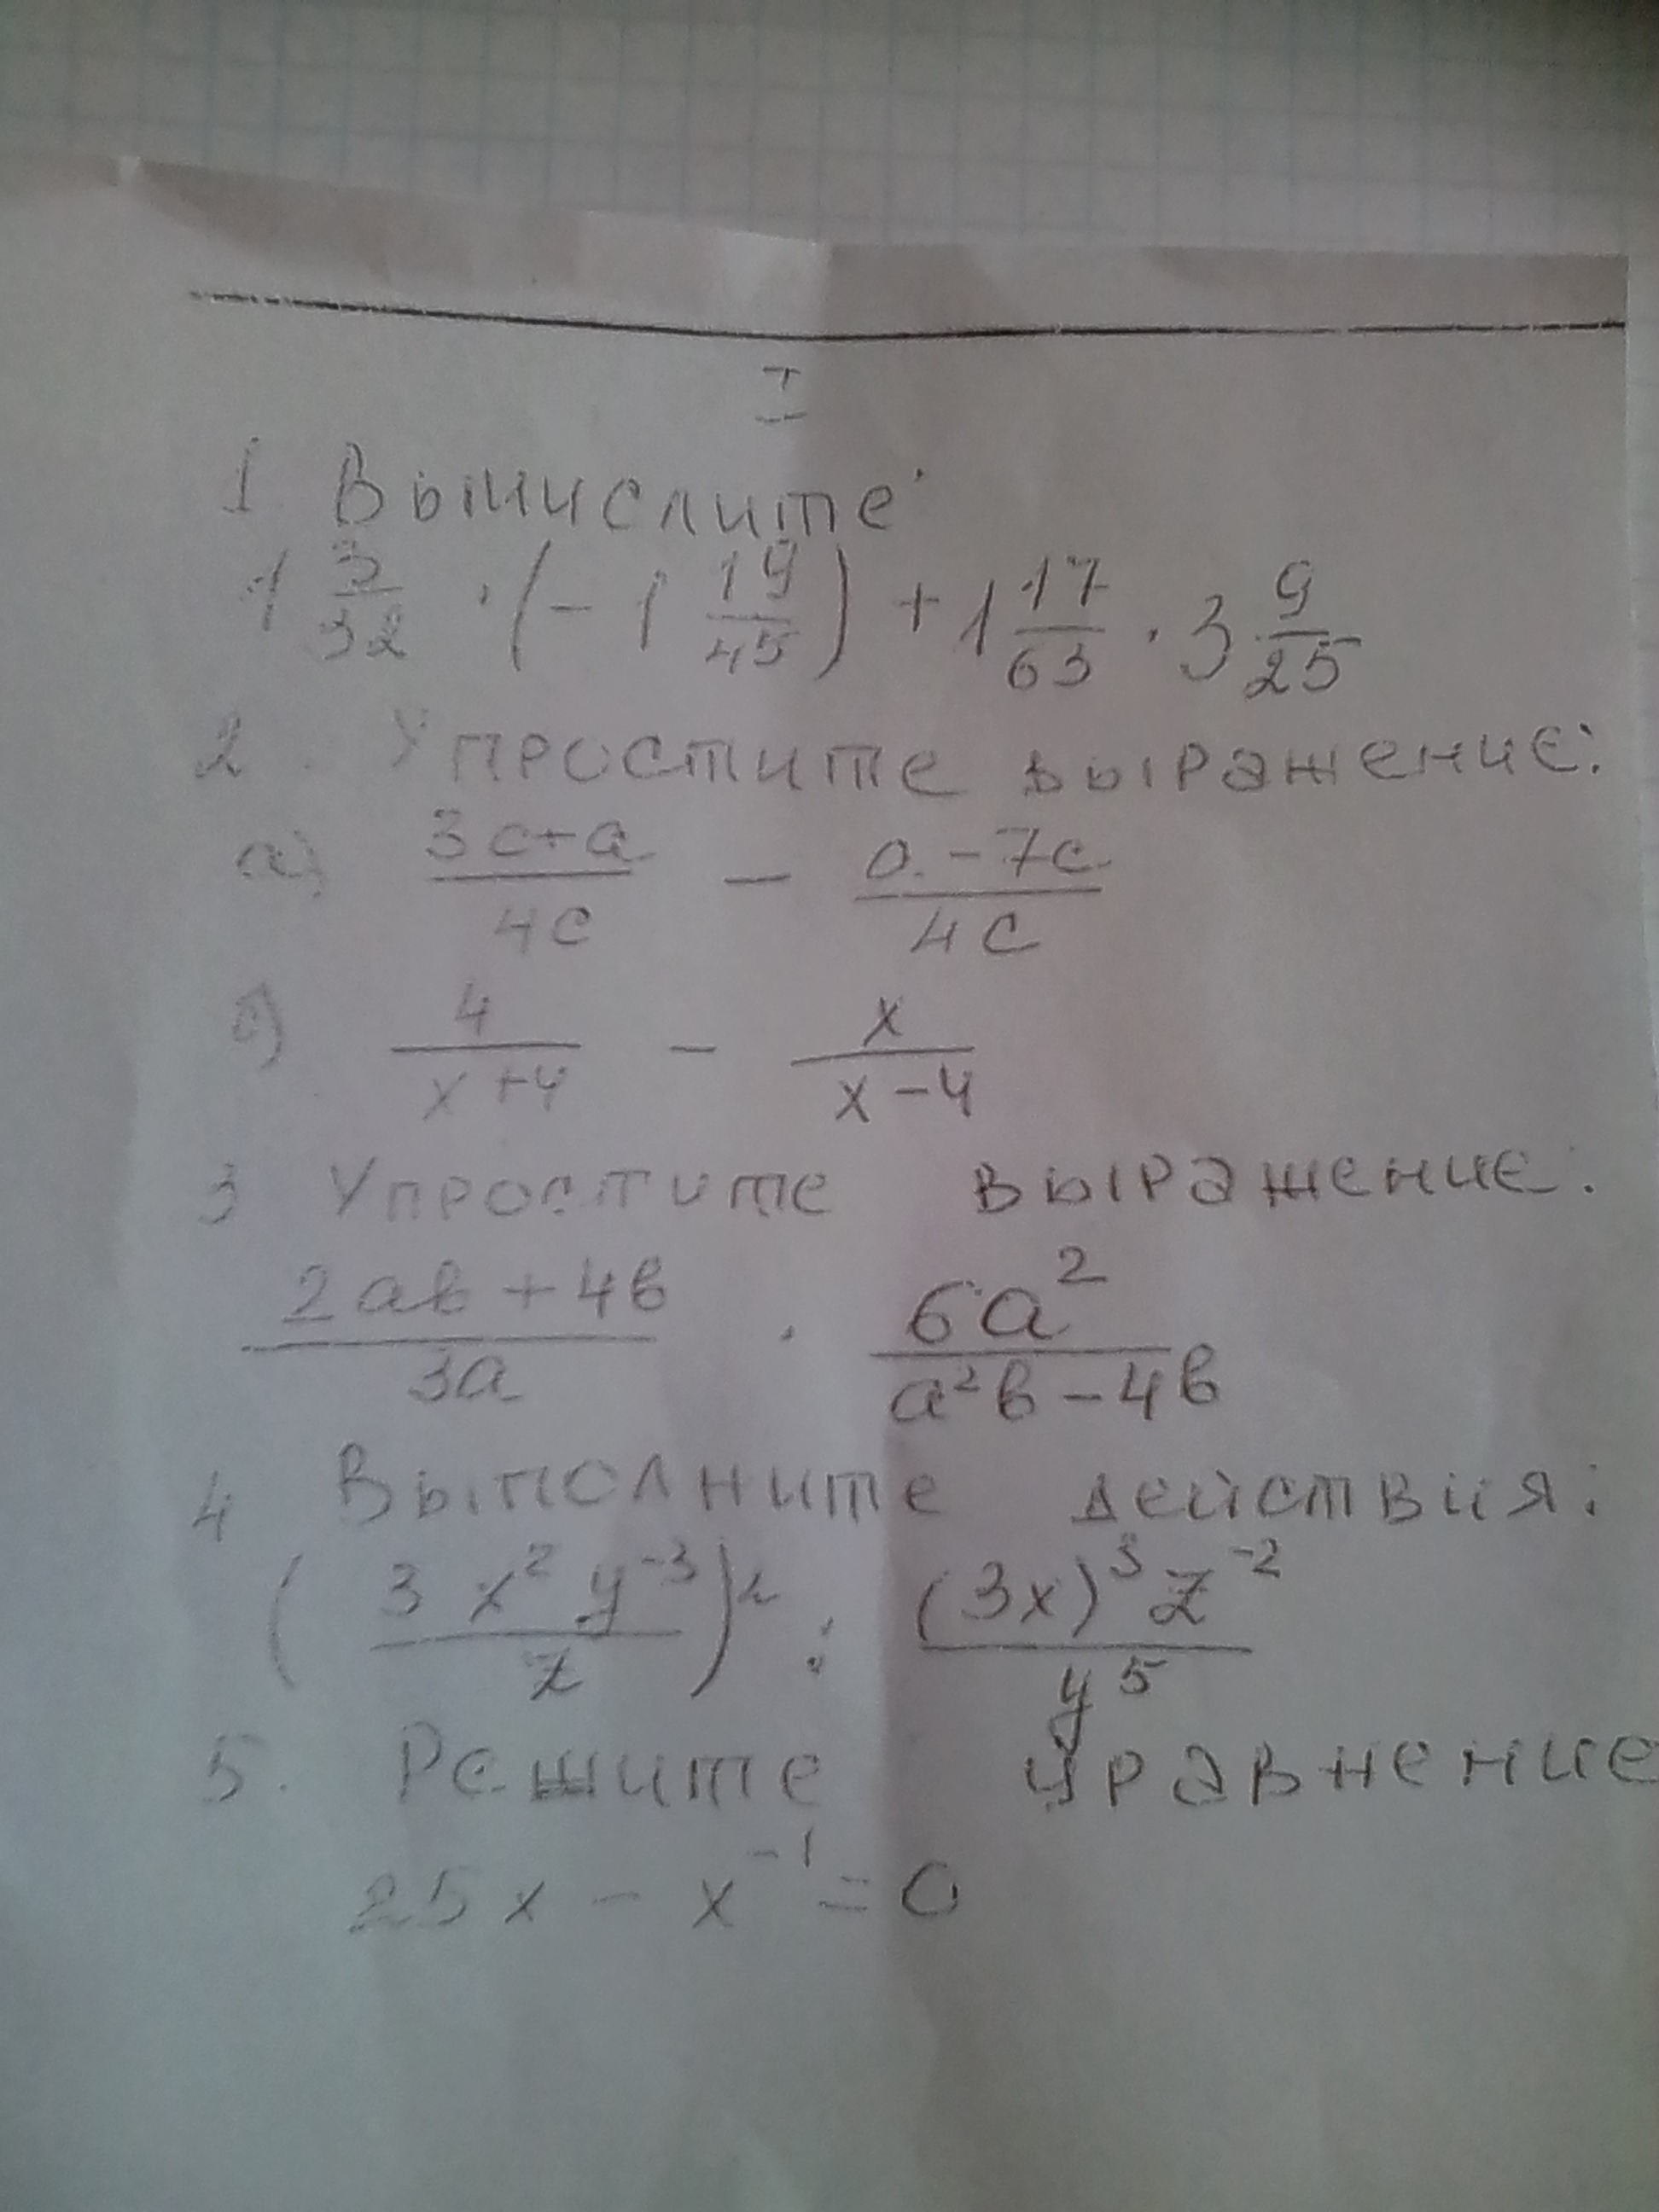 I
1. Вычислите:
1 3/32 · (-1 19/45) + 1 17/63 · 3 9/25
2. Упростите выражение:
а) (3c+a)/(4c) - (a-7c)/(4c)
б) 4/(x+4) - x/(x-4)
3 Упростите выражение:
(2ab+4b)/(3a) · 6a²/(a²b-4b)
4 Выполните действия:
(3x²y⁻³/z)² : ((3x)³z⁻²)/y⁵
5. Решите уравнение
25x - x⁻¹ = 0